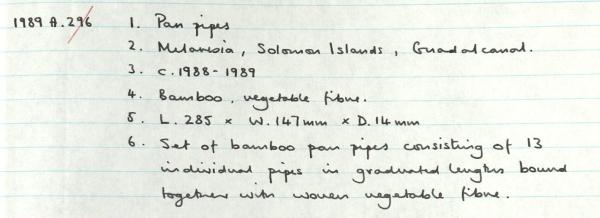 1989 A.296 1. Pan pipes
2. Melanesia, Solomon Islands, Guadalcanal.
3. c.1988-1989
4. Bamboo, vegetable fibre.
5. L. 285 × W. 147mm × D. 14mm
6. Set of bamboo pan pipes consisting of 13
individual pipes in graduated lengths bound
together with woven vegetable fibre.